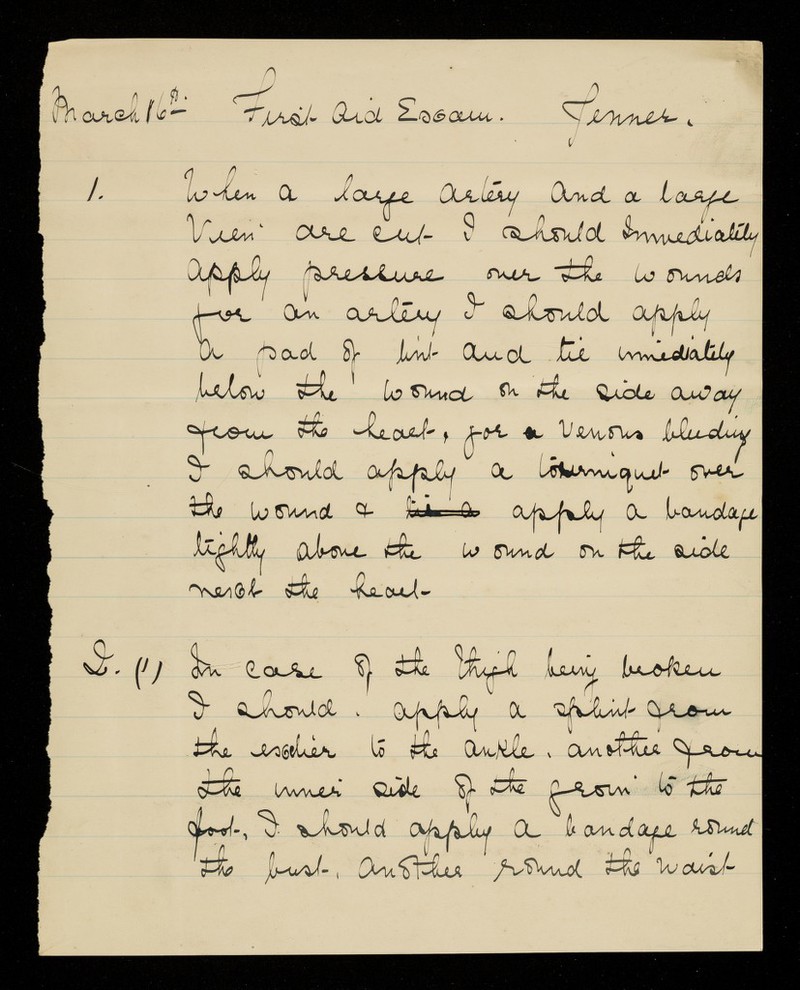 March 16th. First Aid Exam. Jenner.
1. When a large artery and a large
Vien are cut I should Immediately
apply pressure over the wounds
for an artery I should apply
a pad of lint and tie immediately
below the wound on the side away
from the heart, for a Venous bleeding
I should apply a tourniquet over
the wound & tie a apply a bandage
tightly above the wound on the side
next the heart
2. (1) In case of the Thigh being broken
I should. apply a splint from
the to the ankle. another from
the inner side of the groin to the
foot, I should apply a bandage round
the bust. another round the waist